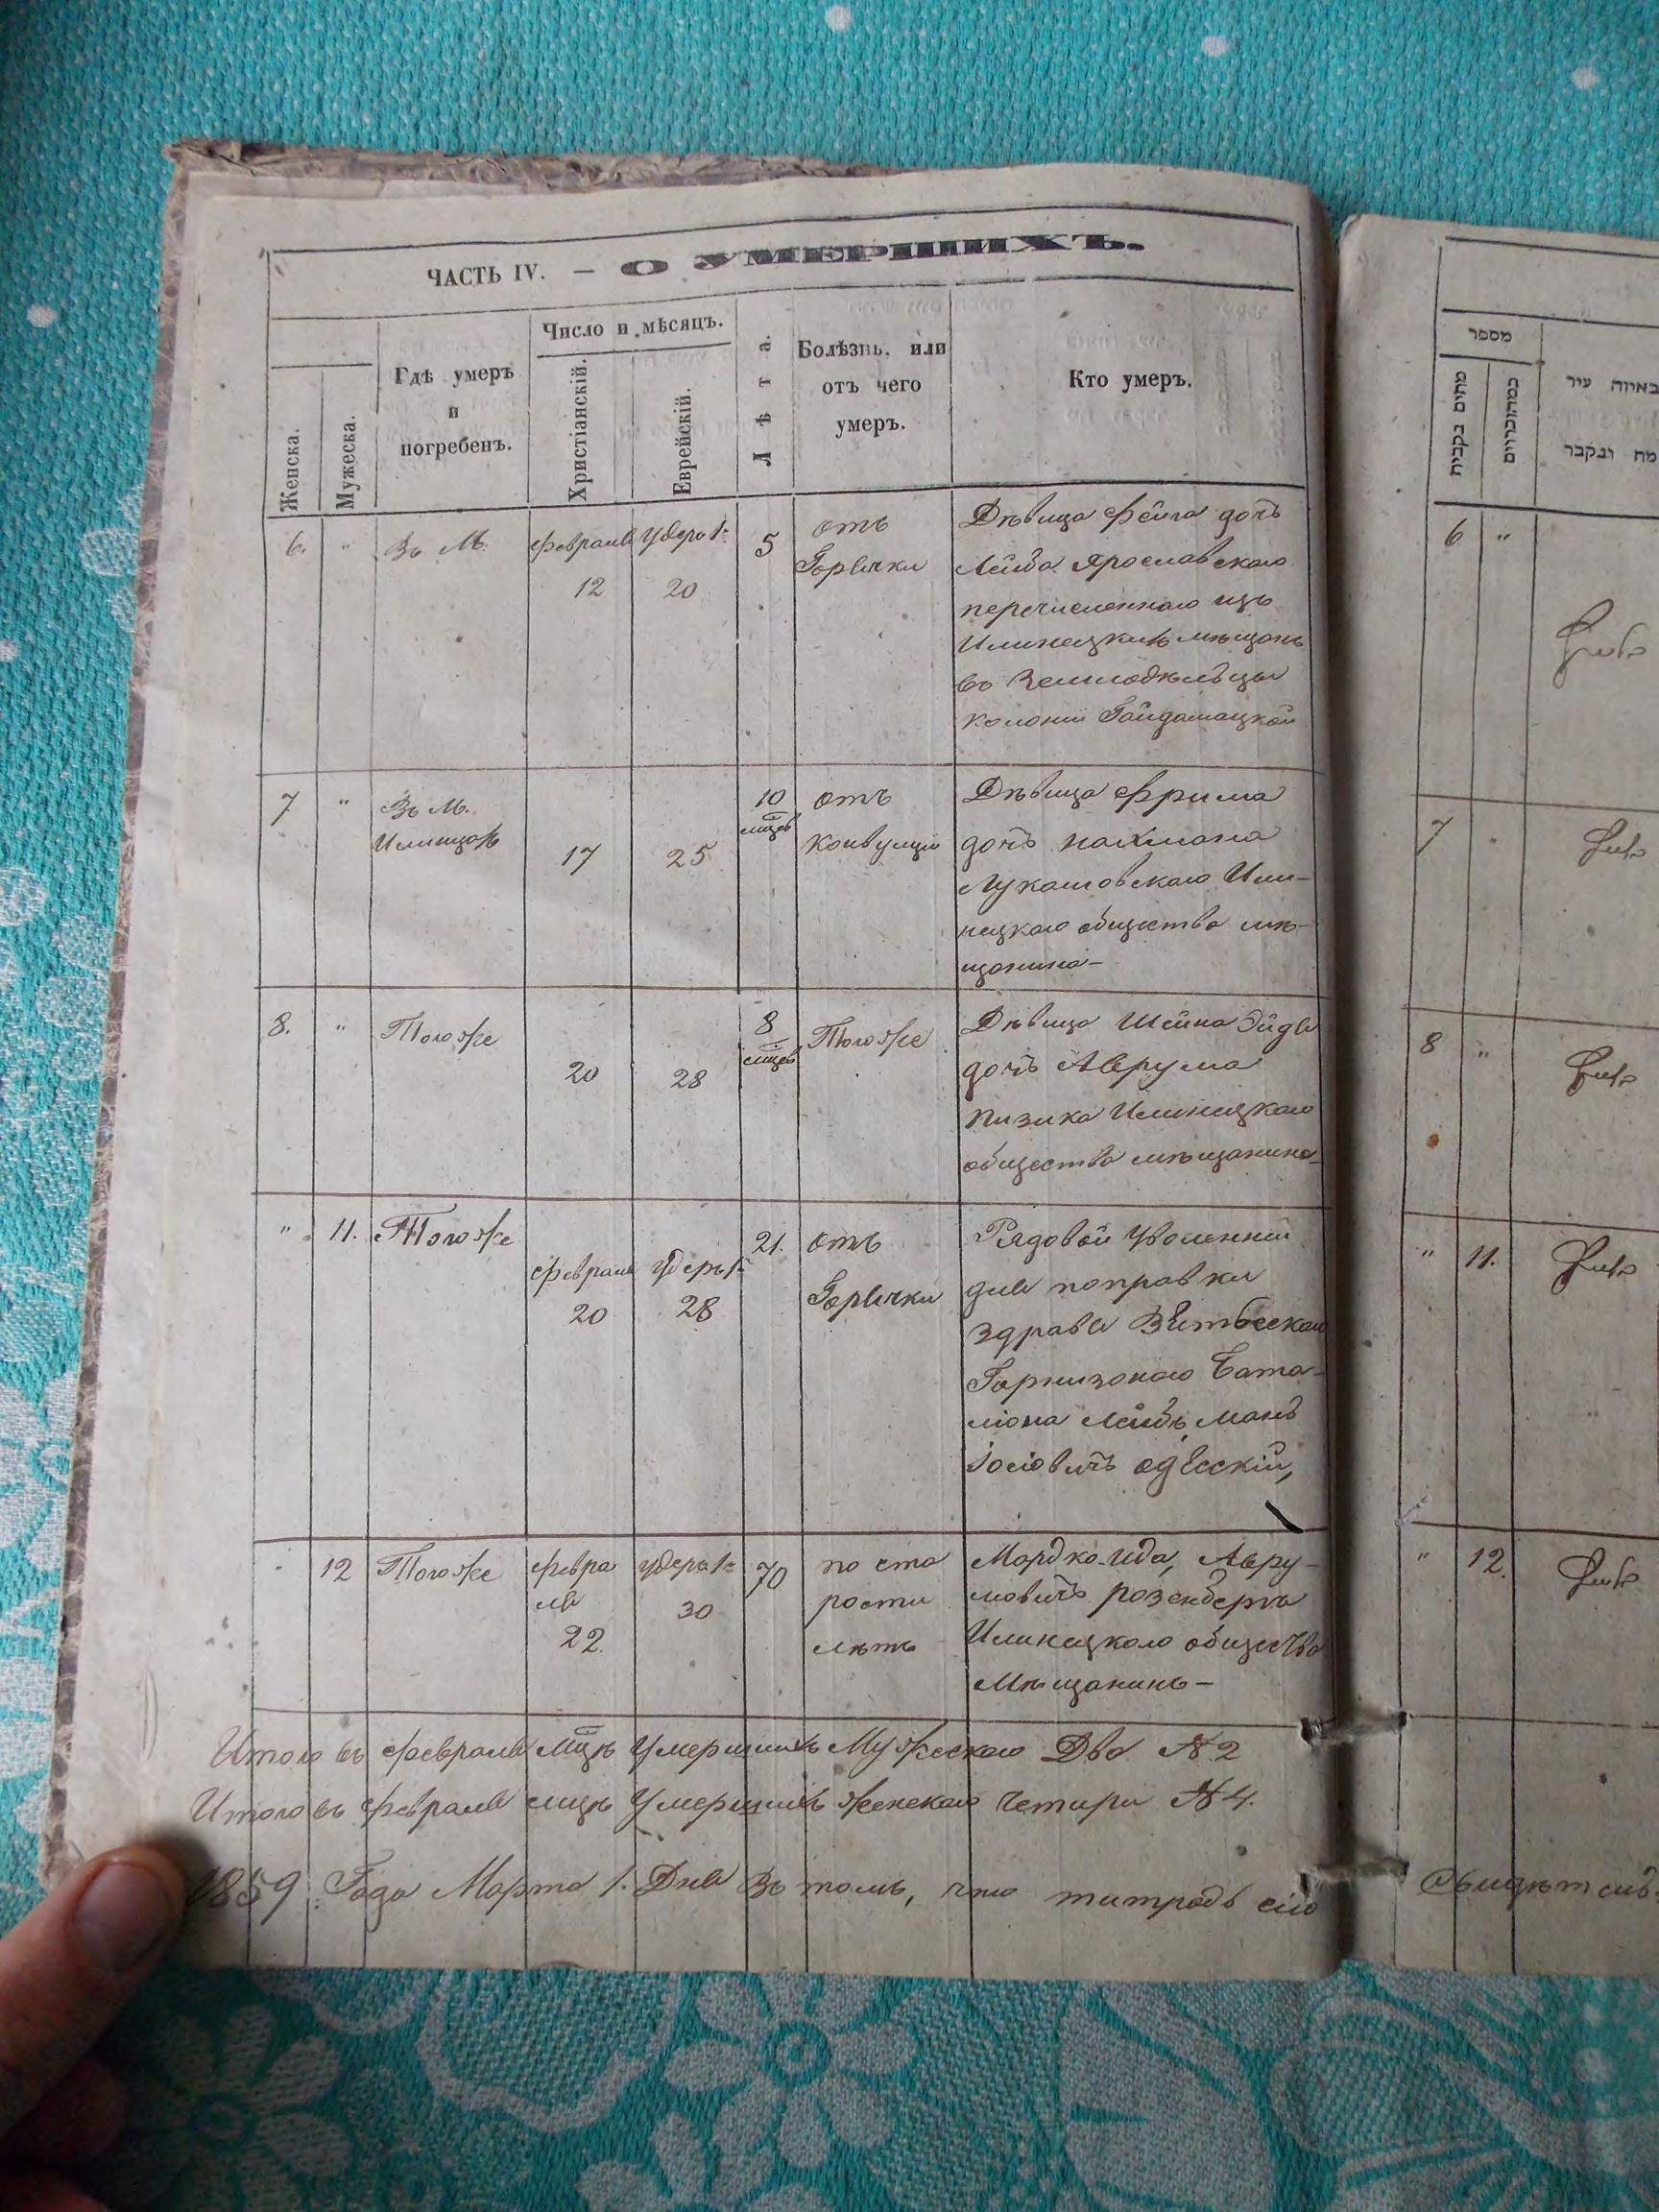 ЧАСТЬ IV. — О УМЕРШИХЪ.
Женска.
Мужеска.
Гдѣ умеръ
и
погребенъ.
Число и мѣсяцъ.
Христіанскій.
Еврейскій.
Лѣта.
Болѣзнь, или
отъ чего
умеръ.
Кто умеръ.
6. " Въ М. февраля 12 20 5
отъ
Горячки
Дѣвица Фейга дочь
Лейба Ярославскаго
перечисленнаго изъ
Илинецкихъ мѣщанъ
въ Земледѣльцы
колоніи Гайдамацкой
7 " Въ М.
Илинцахъ
17 25 10 мцев
отъ
конвулціи
Дѣвица Фрима
дочь Нахмана
Лукашовскаго Или-
нецкаго общества мѣ-
щанина-
8. " Тогоже 20 28 8 мцев Тогоже
Дѣвица Шейна Эйдя
дочь Аврума
Пизика Илинецкаго
общества мѣщанина
" 11. Тогоже февраля 20 28 21.
отъ
Горячки
Рядовой Уволенній
для поправки
здравя Витебскаго
Гарнизонаго Бата-
ліона Лейбъ Манъ
Іосіовичъ Одесскій,
12 Тогоже
февра
ля
22. 30 70
по ста
рости
лѣтъ
Мордко-Ида, Авру-
мовичъ Розенберга
Илинецкого общества
Мѣщанинъ-
Итого въ февраля мцѣ Умершихъ Мужескаго Два № 2
Итого въ февраля мцѣ Умершихъ женскаго четири № 4.
1859 Года Марта 1. Дня Въ томъ, что титрадь сію
מספר
מתים נקבות
באיזה עיר
מת ונקבר
6 "
7 "
8 "
" 11.
" 12.